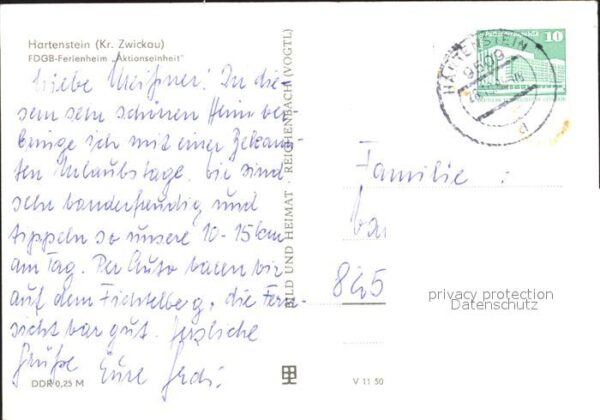 Hartenstein (Kr. Zwickau)
FDGB-Ferienheim „Aktionseinheit"
Liebe Meißner! In die-
sem sehr schönen Heim ver-
bringe ich mit einer Bekann-
ten Urlaubstage. Wir sind
sehr wanderfreudig und
tippeln so unsere 10-15 km
am Tag. Per Auto waren wir
auf dem Fichtelberg, die Fern-
sicht war gut. Herzliche
Grüße Eure Gerdi.
DDR 0,25 M
BILD UND HEIMAT · REICHENBACH (VOGTL)
V 11 50
10
HARTENSTEIN
9509
d
Familie
845
privacy protection
Datenschutz